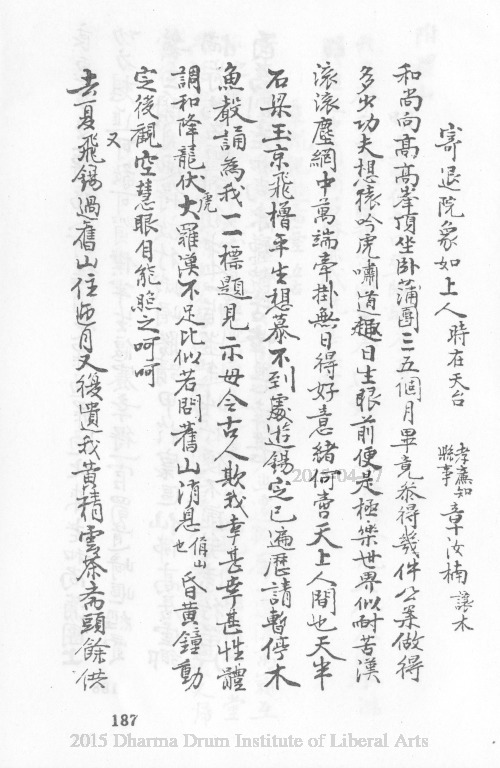 寄退院象如上人 時在天台 孝廉知縣事 章汝楠 讓木
和尚向高高峯頂坐卧蒲團三五個月畢竟叅得幾件公案做得
多少功夫想猿吟虎嘯道趣日生眼前便是極樂世界似耐苦漢
滚滚塵網中萬端牽掛無日得好意緒何啻天上人間也天半
石梁玉京飛橹平生想慕不到處遊錫定已遍歷請暫停木
魚敲誦為我一一標題見示毋令古人欺我幸甚幸甚性體
調和降龍伏虎大羅漢不足比似若問舊山消息也 俏山 昏黄鐘動
定後觀空慧眼自能照之呵呵
又
去夏飛錫過舊山住 月又後遺我黄精雲茶斋頭餘供
187
2015-04-17
2015 Dharma Drum Institute of Liberal Arts